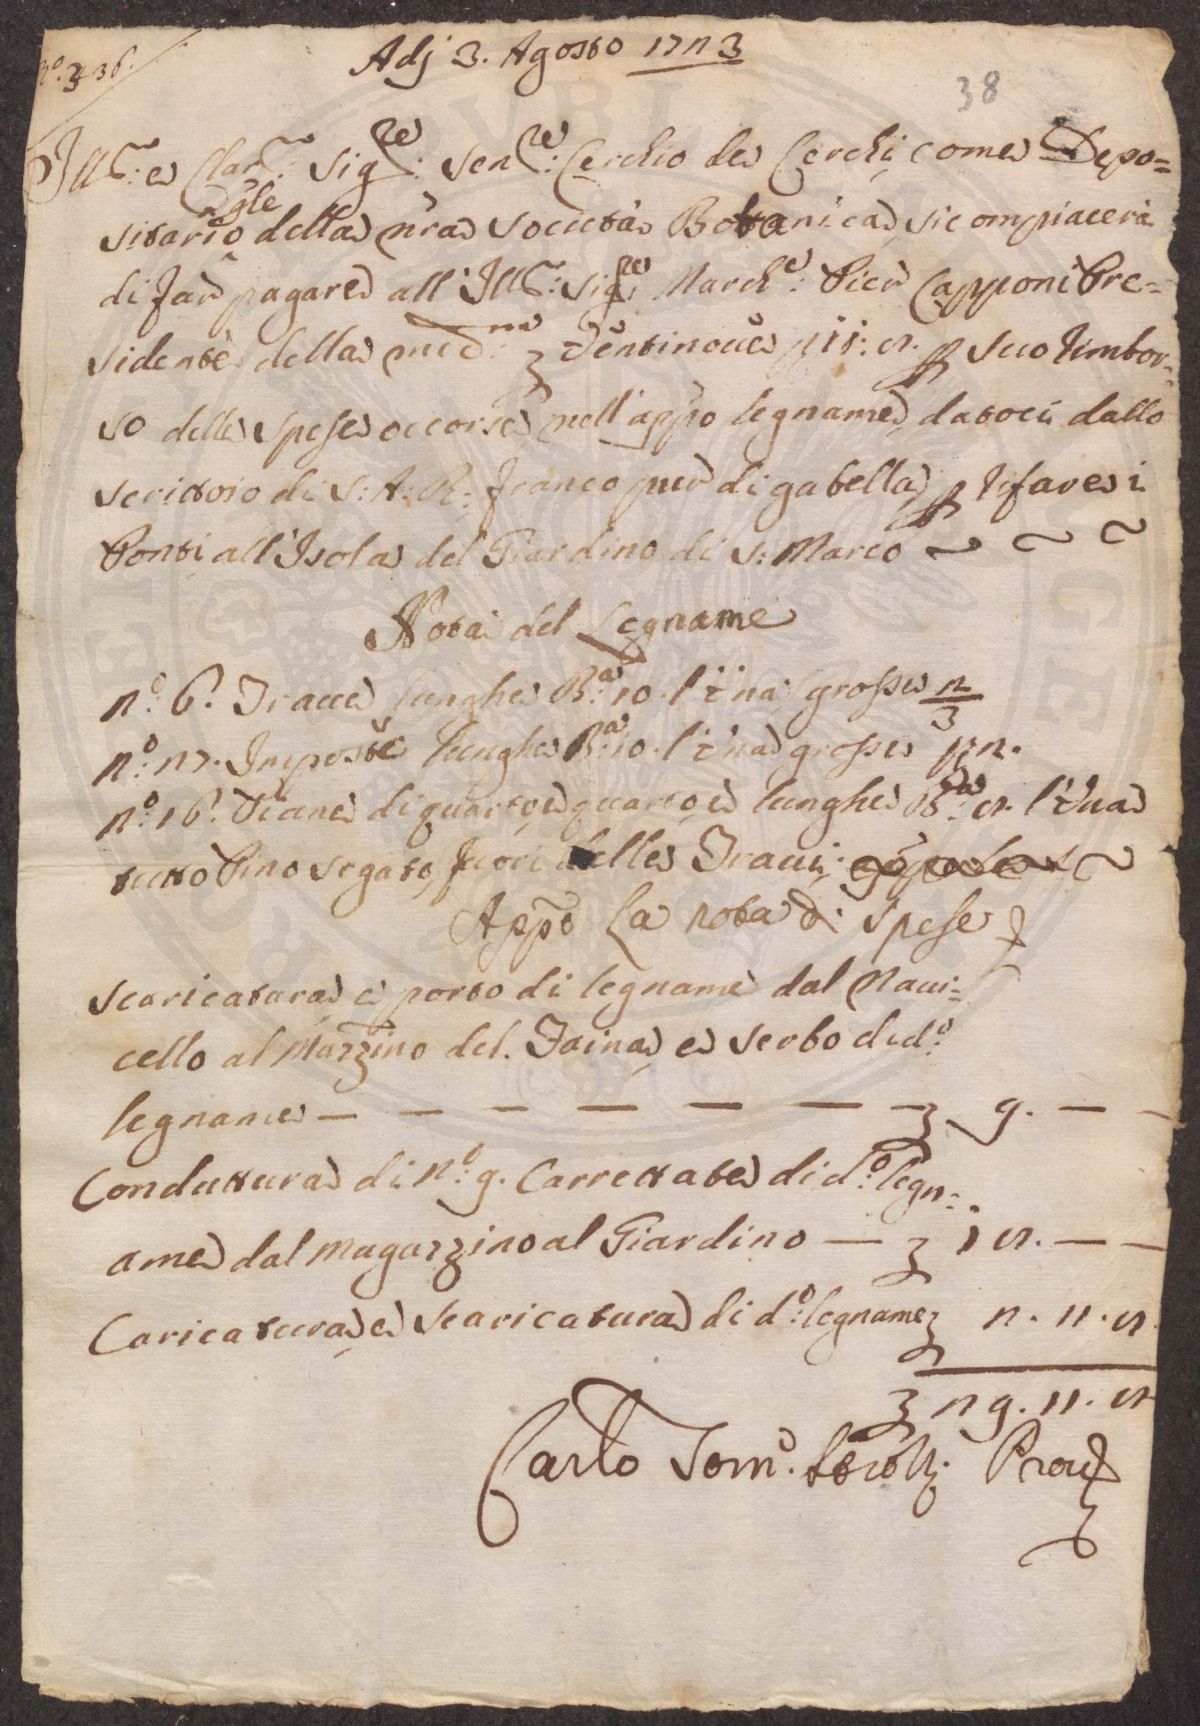 N.º 36.
Adj 3. Agosto 1723
38
Ill:mo e Clar:mo Sig:re Sen:re Cerchio de Cerchi come Depo=
sitario g̃le della ñra Società Botanica, si compiacerà
di far pagare all' Ill:mo Sig:re March:e Pier Capponi Pre-
sidente della med:ma ventinove 11: 5. p suo rimbor-
so delle spese occorse nell' app.o legname, datoci dallo
scrittoio di S: A: R: franco però di gabella, p rifare i
Ponti, all' Isola del Giardino di S: Marco
Nota del Legname
n.º 6. Trave lunghe B:a 10. l' una, grosse 2/3
n.º 27. Imposte lunghe B:a 10. l' una grosse 1/2.
n.º 16. Piane di quarto, e quarto, e lunghe B:a 5. l' una
tutto Pino segato, fuori delle Travi,
App.o La nota di spese
Scaricatura, e porto di legname dal Navi=
cello al Mazzino del. Faina, e serbo di d.º
legname — — — — — — — 9. — —
Conduttura di N.º 9. Carrettate di d.º legn-
ame dal magazzino al Giardino — 15. — —
Caricatura, e scaricatura di d.º legname 2. 11. 5.
29. 11. 5
Carlo Tom.º Prov.e